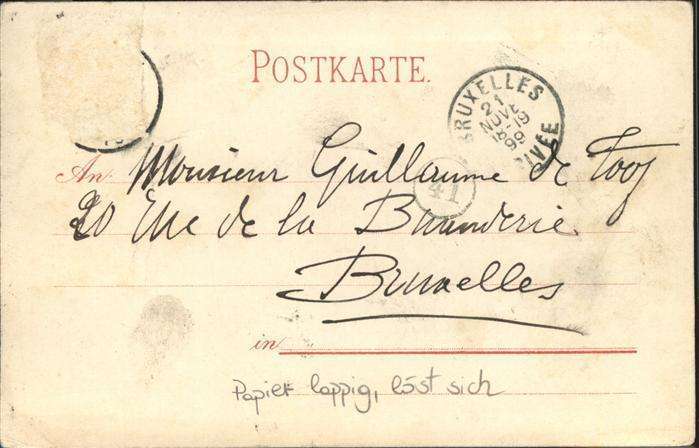 POSTKARTE.
BRUXELLES
21
NOVE
18-19
99
An Monsieur Guillaume de
41
20 Rue de la Buanderie
Bruxelles
in
Papier lappig, löst sich